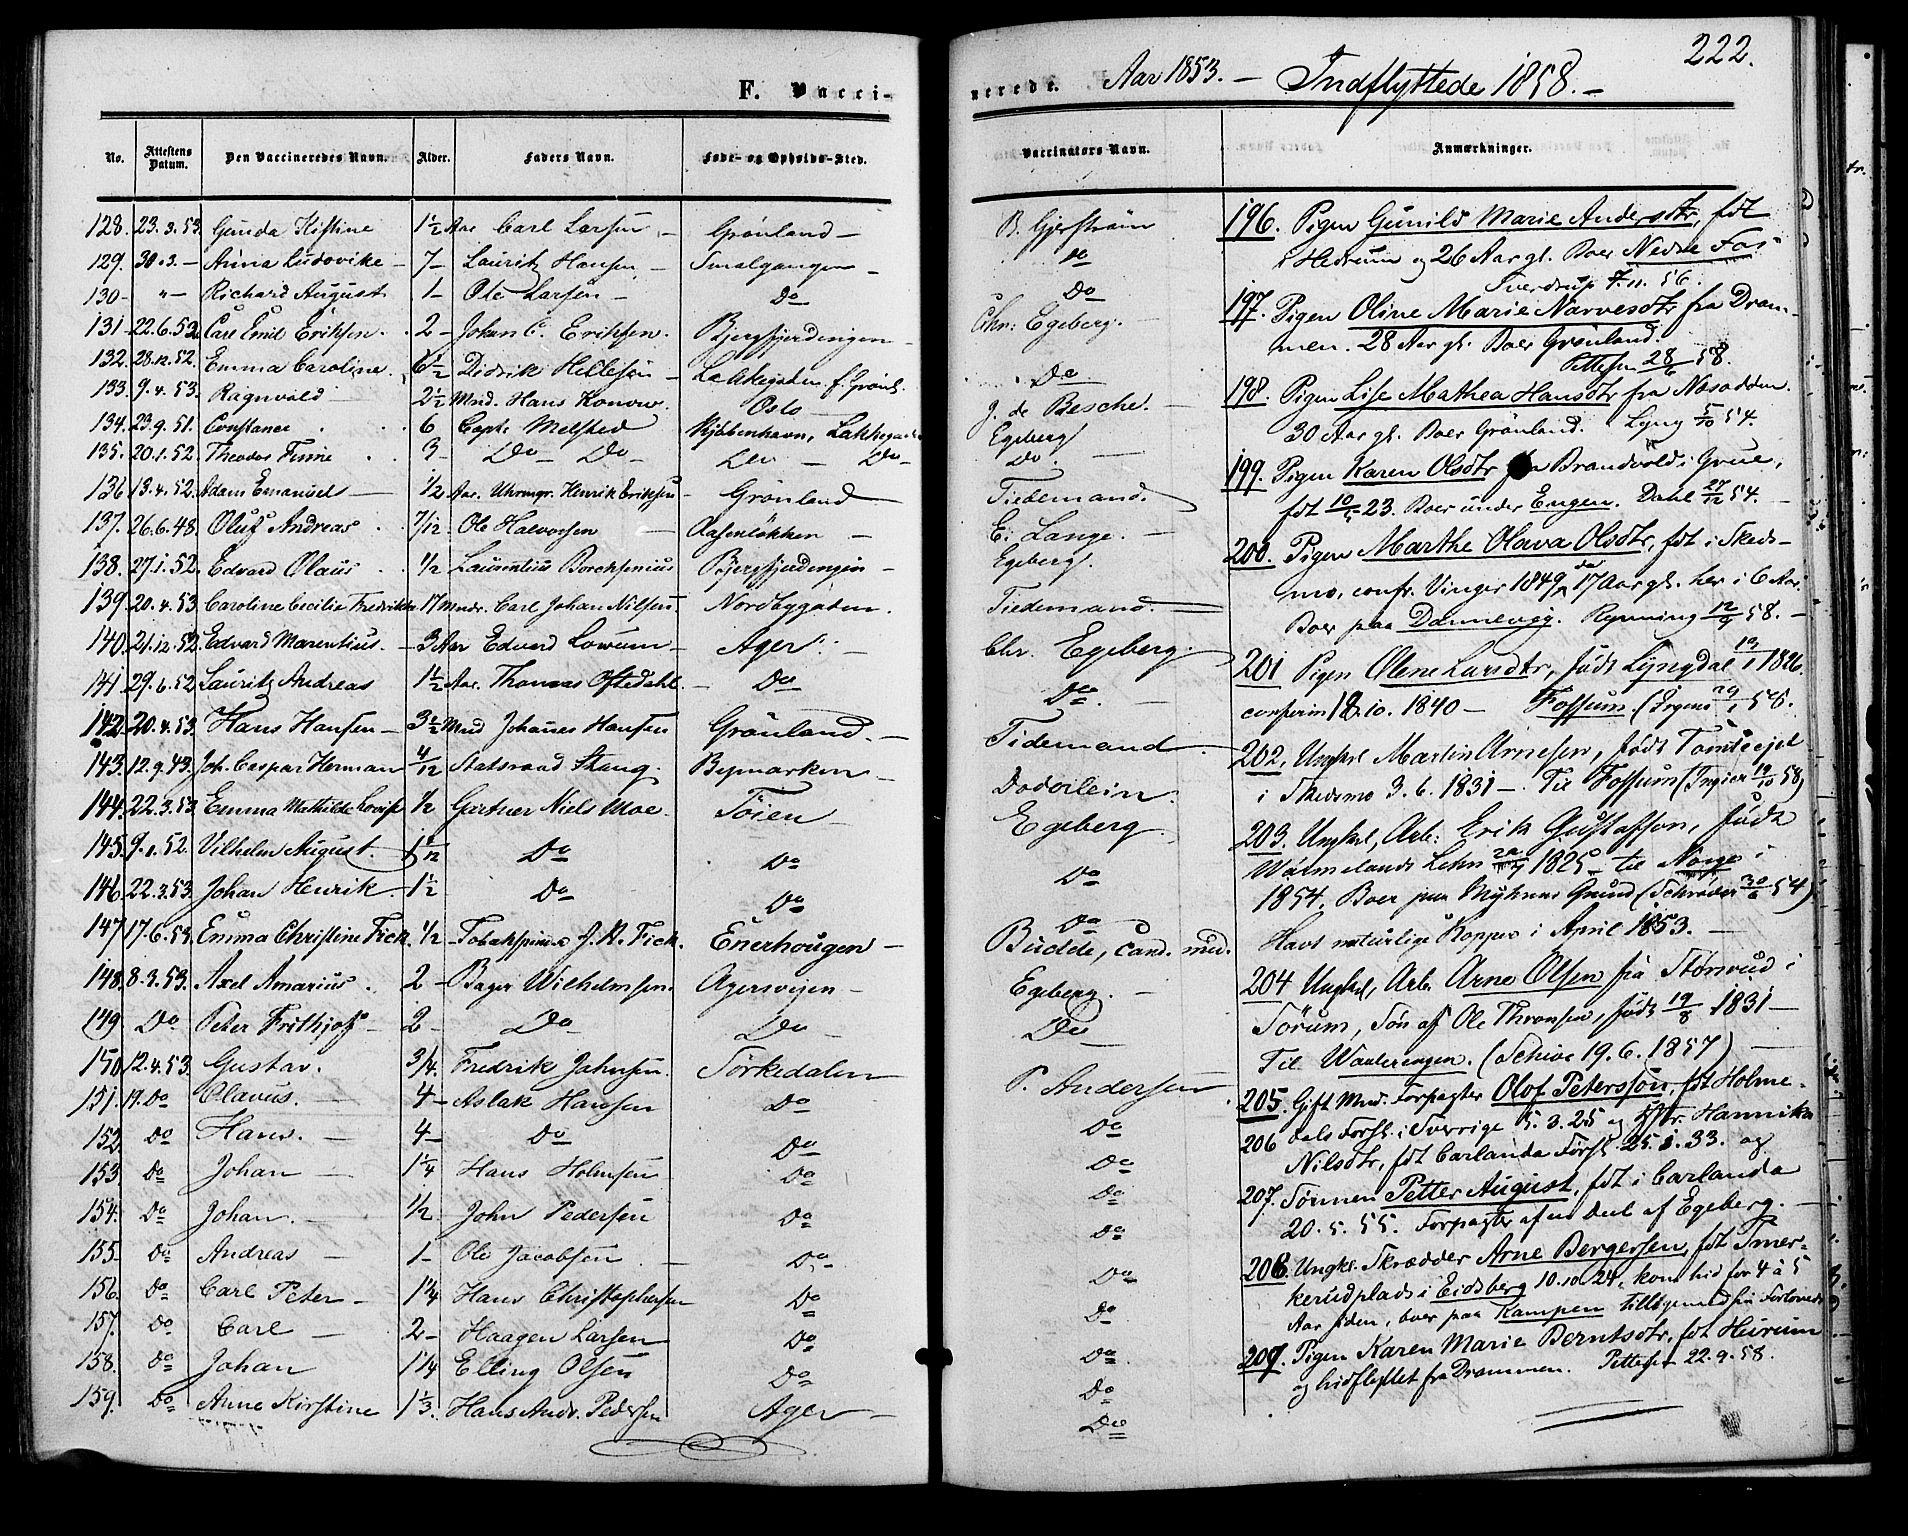 F. Vacci-
No. Attestens Datum. Den Vaccineredes Navn. Alder. Faders Navn. Føde- og Opholds-Sted.
128. 23.3.53. Gunda Kistine 1½ Aar Carl Larsen – Grønland –
129. 30.3. – Anna Ludovike – 7 – Lauritz Hansen – Smalgangen –
130 – „ – Richard August 1 – Ole Larsen – Do
131 – 22.6.52 Carl Emil Eriksen. 2 – Johan C. Eriksen. Bjergfjerdingen –
132. 28.12.52. Emma Caroline. 6½ – Didrik Hellesen – Lakkegaden f. Grønl.
133. 9.4.53. Ragnvald – 2½ Mnd. Hans Konow. Oslo –
134. 23.9.51. Constance . . 6 Capt. Melsted Kjöbenhavn, Lakkegaden
135. 20.1.52. Theodor Finne . . 3 – Do – Do – Do – Do –
136 13.4.52. Adam Emanuel – ½ Aar. Uhrmgr. Henrik Eriksen – Grønland –
137. 26.6.48. Oluf Andreas . . 7/12 Ole Halvorsen – Aasenløkken –
138. 27.1.52. Edvard Olaus . . ½ – Laurentius Borchsenius Bjergfjerdingen –
139. 20.4.53. Caroline Cecilie Fredrikke 17 Mndr. Carl Johan Nilsen. Nordbygaden.
140. 21.12.52. Edvard Marentius. – 3 Aar Edvard Lowum – Ager. –
141. 29.6.52. Lauritz Andreas 1½ Aar. Thomas Oftedahl. – Do
142. 20.4.53. Hans Hansen – 3½ Mnd Johanes Hansen Grønland. –
143. 12.9.43. Joh. Caspar Herman 4/12 Statsraad Stang. Bymarken –
144. 22.3.53. Emma Mathilde Lovise ½ Gartner Niels Moe. Töien –
145. 9.1.52. Vilhelm August. Do Do
146. 22.3.53. Johan Henrik – 1½ Do Do
147 17.6.53. Emma Christine Fick. ½ – Tobakspinder J. R. Fick. Enerhougen –
148. 8.3.53. Axel Amarius . 2 – Bager Wilhelmsen. Agersveien –
149 Do Peter Frithjof – 2 – Do Do –
150. 12.4.53. Gustav. – 3/4. Fredrik Jahnsen. Sørkedalen
151. 19. Do Olavus. – 4 – Aslak Hansen Do
152. Do Hans. – 4 – Do Do
153. Do Johan – 1¼ Hans Holmsen Do
154. Do Johan. – ½ – John Pedersen Do
155 – Do Andreas – 1 – Ole Jacobsen – Do.
156. Do Carl Peter – 1¼ Hans Christophersen Do
157. Do Carl – 2 – Haagen Larsen Do
158. Do Johan 1¼ Elling Olsen Do
159. Do Anne Kirstine 1⅓. Hans Andr. Pedersen Ager –
222.
nerede. Aar 1853. – Indflyttede 1858. –
Vaccinators Navn. Anmærkninger.
B. Gjerstrøm
Do
Do
Chr: Egeberg.
Do
J. de Besche. –
Egeberg
Do.
Tiedemand.
E. Lange. –
Egeberg.
Tiedemand. –
Chr. Egeberg.
Do
Tidemand
Dodvilein.
Egeberg.
Do
Do
Budde, cand. med.
Egeberg. –
Do
P. Andersen
Do
Do
Do
Do
Do
Do
Do
Do
Do
196. Pigen Gunild Marie Andersdtr, fdt
i Hedrum og 26 Aar gl. Boer Nedre Fos
Sverdrup 7.11.56.
197. Pigen Oline Marie Narvesdtr fra Dram-
men. 28 Aar gl. Boer Grønland.
Pettersen 28/6 58.
198. Pigen Lise Mathea Hansdtr fra Næsodden
30 Aar gl. Boer Grønland. Lyng 5/10 54.
199. Pigen Karen Olsdtr fra Brandvold i Grue,
fdt 10/5 23. Boer under Engen. Dahl 27/12 54. –
200. Pigen Marthe Olava Olsdtr, fdt i Skeds-
mo, confr. Vinger 1849, da 17 Aar gl. her i 6 Aar.
Boer paa Dannevig. Rynning 12/4 58. –
201 Pigen Olene Larsdtr, född Lyngdal 19/1 1826.
confirm 18.10.1840 – Fossum. (Irgens 29/1 58.
202. Ungkl. Martin Arnesen, født Tomteejet
i Skedsmo 3.6.1831 –. Til Fossum (Ingier 19/10 58)
203. Ungkl, Arb: Erik Gustafson, född
Wärmelands Lehn 1825 – til Norge i
1854. Boer paa Myhrens Grund (Schrøder 30/6 54)
Havt naturlige Kopper i April 1853. –
204 Ungkl, Arb. Arne Olsen fra Stønrud i
Sörum, Søn af Ole Thronsen, född 19/8 1831 –
Til Waalerengen. (Schive 19.6.1857) –
205. Gift Mnd. Forpagter Olof Petersson, fdt Holme-
206 dals Forsl. i Sverrige 5.3.25 og Hstr. Hannika
Nilsdtr, fdt Carlanda Förs. 25.1.33. og
207. Sönnen Petter August, fdt i Carlanda
20.5.55. Forpagter af en Deel af Egeberg. –
208. Ungkl. Skrædder Arne Bergersen, fdt Smer-
kerudplads i Eidsberg 10.10.24, kom hid for 4 à 5
Aar siden, boer paa Kampen tilligemed sin Forlovede
209. Pigen Karen Marie Berntsdtr, fdt Hurum
og hidflyttet fra Drammen. Pettersen 22.9.58.